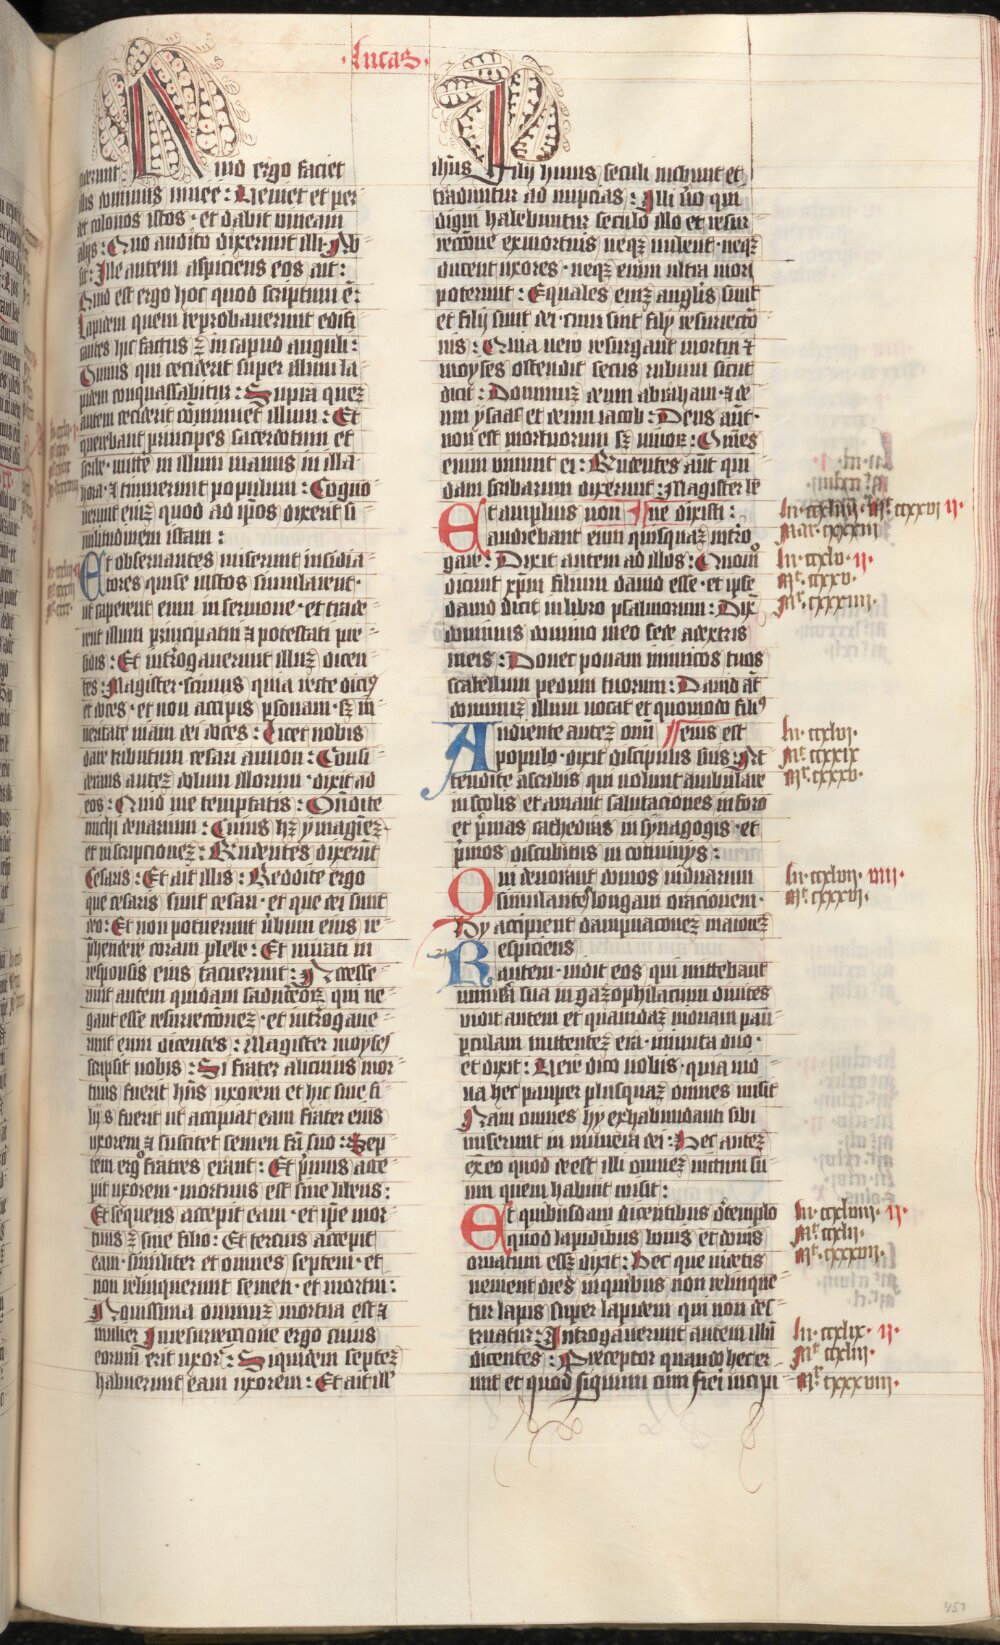 ·lucas·
derunt Quid ergo faciet
illis dominus vinee : Veniet et per
det colonos istos · et dabit vineam
alijs : Quo audito dixerunt illi · Ab
sit : Ille autem aspiciens eos ait :
Quid est ergo hoc quod scriptum ē :
Lapidem quem reprobaverunt edifi
cantes hic factus ē in capud anguli :
Omnis qui ceciderit super illum la
pidem conquassabitur : Supra quez
autem ceciderit cōminuet illum : Et
querebant principes sacerdotum et
scribe · mitte in illum manus in illa
hora · ⁊ timuerunt populum : Cogno
verunt eniz quod ad ip̄os dixerit si
militudinem istam :
Et observantes miserunt insidia
tores qui se iustos simularent ·
ut caperent eum in sermone · et trade
rent illum principatui ⁊ potestati pre
sidis : Et int̄rogaverunt illuz dicen
tes : Magister · scimus quia recte dicis
et doces · et non accipis p̄sonam · sz in
veritate viam dei doces : Licet nobis
dare tributum cesari an non : Consi
derans autez dolum illorum · dixit ad
eos : Quid me temptatis : Ondite
michi denarium : Cuius hz ymaginez
et inscripcionez : Rn̄dentes dixerūt
Cesaris : Et ait illis : Reddite ergo
que cesaris sunt cesari · et que dei sunt
deo : Et non potuerunt ūbum eius re
p̄hendere coram plebe : Et mirati in
responsis eius tacuerunt : Accesse
runt autem quidam saduceorz qui ne
gant esse resurrectionez · et int̄rogave
runt eum dicentes : Magister moyses
scripsit nobis : Si frater alicuius mor
tuus fuerit hn̄s uxorem et hic sine li
b̄is fuerit ut accipiat eam frater eius
uxorem ⁊ suscitet semen frī suo : Sep
tem ergo fratres erant : Et p̄mus acce
pit uxorem · mortuus est sine liberis :
Et sequens accepit eam · et ip̄e mor
tuus ē sine filio : Et tercius accepit
eam · similiter et omnes septem · et
non relinquerunt semen · et mortui :
Novissima omniuz mortua est ⁊
mulier In resurrectione ergo cuius
eorum erit uxor : Siquidem septez
habuerunt eam uxorem : Et ait ille
ihūs Filij huius seculi nubunt et
traduntur ad nupcias : Illi ūo qui
digni habebuntur seculo illo et resur
rectione ex mortuis neqz nubent · neqz
ducent uxores · neqz enim ultra mori
poterunt : Equales eniz anglis sunt
et filij sunt dei · cum sint filij resurrectio
nis : Quia vero resurgant mortui ⁊
moyses ostendit secus rubum sicut
dicit : Dominuz deum abraham · ⁊ de
um ysaac et deum iacob : Deus aūt ·
non est mortuorum sz vivorz : Omēs
enim vivunt ei : Rn̄dentes aūt qui
dam scribarum dixerunt : Magister be
Et amplius non ¶ ne dixisti :
audebant eum quisquaz int̄ro
gare : Dixit autem ad illos : Quomō
dicunt xp̄m filium david esse · et ipse
david dicit in libro psalmorum : Dix̄
dominus domino meo sede a dextris
meis : Donec ponam inimicos tuos
scabellum pedum tuorum : David at̄
dominuz illum vocat et quomodo filiꝰ
Audiente autez omī ¶ eius est
populo · dixit discipulis suis : At
tendite a scribis qui volunt ambulare
in stolis et amant salutaciones in foro
et p̄mas cathedras in synagogis · et
p̄mos discubitus in conviviys :
Qui devorant domos viduarum
simulantes longam oracionem ·
Hy accipient dampnacionez maiorez
Respiciens
autem · vidit eos qui mittebant
munera sua in gazophilacium divites
vidit autem et quamdaz viduam pau
perculam mittentez era · minuta duo ·
et dixit : Vere dico vobis · quia vid
ua hec pauper plusquaz omnes misit
Nam omnes hy ex habundanti sibi
miserunt in munera dei : Hec autez
ex eo quod deest illi omnez victum su
um quem habuit misit :
Et quibusdam dicentibus d̄ templo
quod lapidibus bonis et donis
ornatum essz dixit : Hec que videtis
venient dies in quibus non relinque
tur lapis super lapidem qui non des
truatur : Int̄rogaverunt autem illū
dicentes : Preceptor quando hec er
unt et quod signum cum fieri incipi
lu · ccxliiii · Mt · ccxxvi · ij ·
Mar · cxxxiii
lu · ccxlv · ij ·
Mt · ccxxv ·
Mr · cxxxiiii ·
lu · ccxlvi ·
Mt · ccxxix
Mr · cxxxv ·
lu · ccxlvii · viii ·
Mr · cxxxvi ·
lu · ccxlviii · ij ·
Mt · ccxlii ·
Mr · cxxxvii ·
lu · ccxlix · ij ·
Mt · ccxliii ·
Mr · cxxxviii ·
451